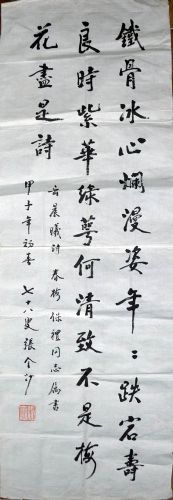 鐵骨冰心爛漫姿年：跌宕壽
良時紫華綠萼何清致不是梅
花盡是詩
晨曦詩 春梅保禮同志屬書
甲子年初春 七十八叟張